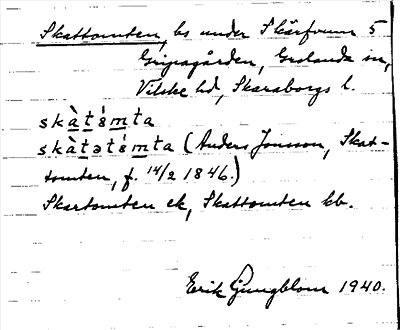 Skattomten, bs under Skärfvum 5
Gripagården, Grolanda sn,
Vilske hd, Skaraborgs l.
skàtǝ́mta
skàtǝtǝ́mta (Anders Jonsson, Skat-
tomten, f. 14/2 1846.)
Skartomten ek, Skattomten kb.
Erik Ljungblom 1940.